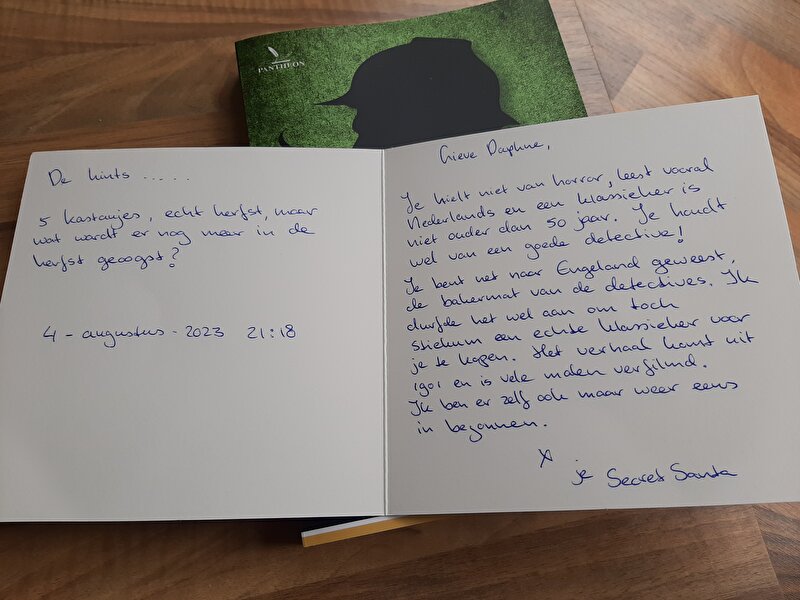 PANTHEON
De hints .....
5 kastanjes, echt herfst, maar
wat wordt er nog meer in de
herfst geoogst?
4 - augustus - 2023 21:18
Lieve Daphne,
Je hielt niet van horror, leest vooral
Nederlands en een klassieker is
niet ouder dan 50 jaar. Je houdt
wel van een goede detective!
Je bent net naar Engeland geweest,
de bakermat van de detectives. Ik
durfde het wel aan om toch
stiekum een echte klassieker voor
je te kopen. Het verhaal komt uit
1901 en is vele malen verfilmd.
Ik ben er zelf ook maar weer eens
in begonnen.
x
je Secret Santa